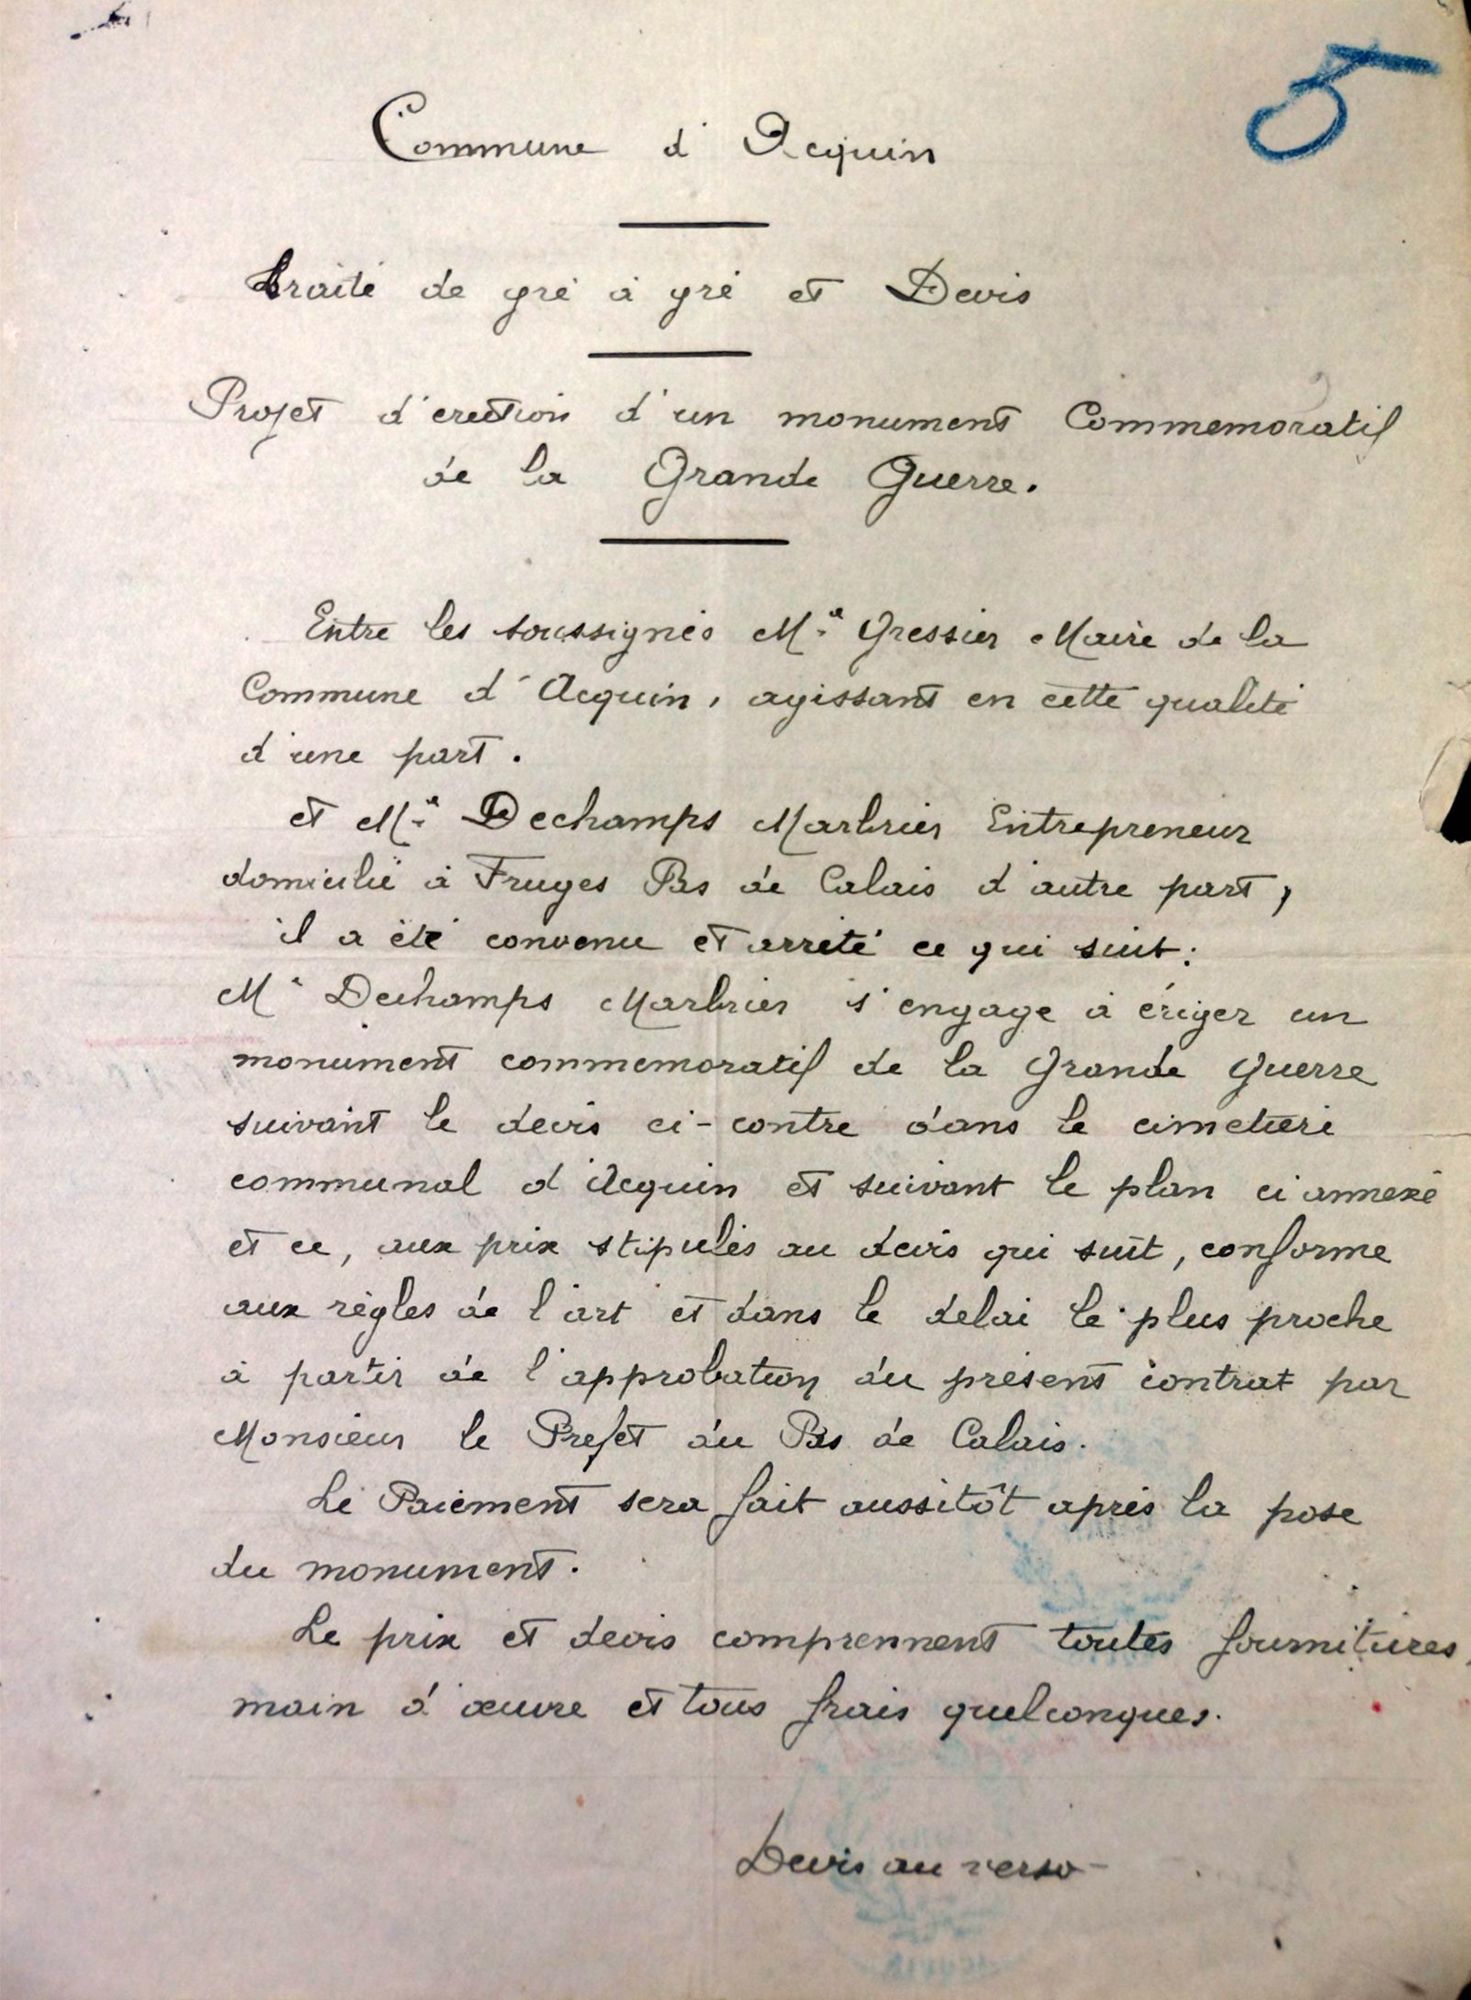 5
Commune d'Acquin
Traité de gré à gré et Devis
Projet d'erection d'un monument Commemoratif
de la Grande Guerre.
Entre les soussignés Mr Gressier Maire de la
Commune d'Acquin, agissant en cette qualité
d'une part.
et Mr Dechamps Marbrier Entrepreneur
domicilié à Fruges Pas de Calais d'autre part,
il a été convenu et arrêté ce qui suit:
Mr Dechamps Marbrier s'engage à ériger un
monument commemoratif de la Grande Guerre
suivant le devis ci-contre dans le cimetière
communal d'Acquin et suivant le plan ci annexé
et ce, aux prix stipulés au devis qui suit, conforme
aux règles de l'art et dans le delai le plus proche
à partir de l'approbation du présent contrat par
Monsieur le Prefet du Pas de Calais.
Le Paiement sera fait aussitôt après la pose
du monument.
Le prix et devis comprennent toutes fournitures,
main d'œuvre et tous frais quelconques.
Devis au verso -